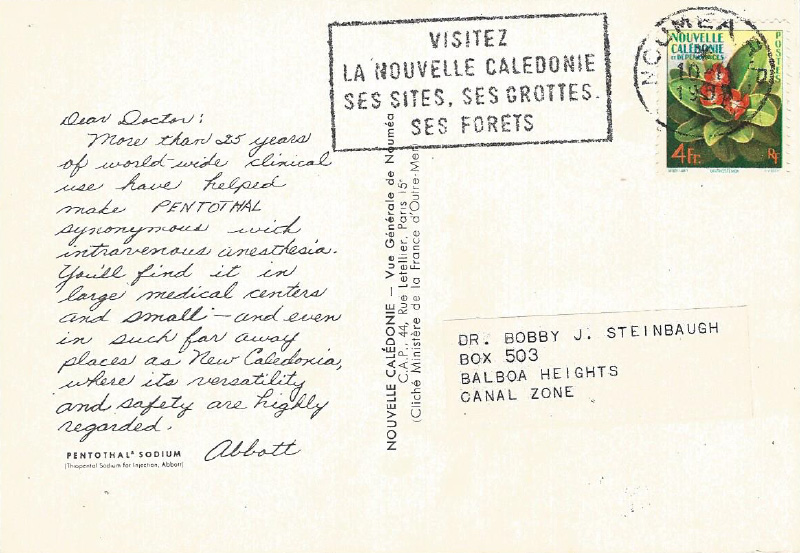 VISITEZ
LA NOUVELLE CALEDONIE
SES SITES, SES GROTTES.
SES FORETS
NOUMEA
NOUVELLE
CALÉDONIE
ET DÉPENDANCES
POSTES
4 Fr.
RF
Dear Doctor:
More than 25 years
of world-wide clinical
use have helped
make PENTOTHAL
synonymous with
intravenous anesthesia.
You'll find it in
large medical centers
and small — and even
in such far away
places as New Caledonia,
where its versatility
and safety are highly
regarded.
Abbott
PENTOTHAL® SODIUM
(Thiopental Sodium for Injection, Abbott)
NOUVELLE CALÉDONIE — Vue Générale de Nouméa
C.A.P., 44, Rue Letellier, Paris 15e
(Cliché Ministère de la France d'Outre-Mer)
DR. BOBBY J. STEINBAUGH
BOX 503
BALBOA HEIGHTS
CANAL ZONE